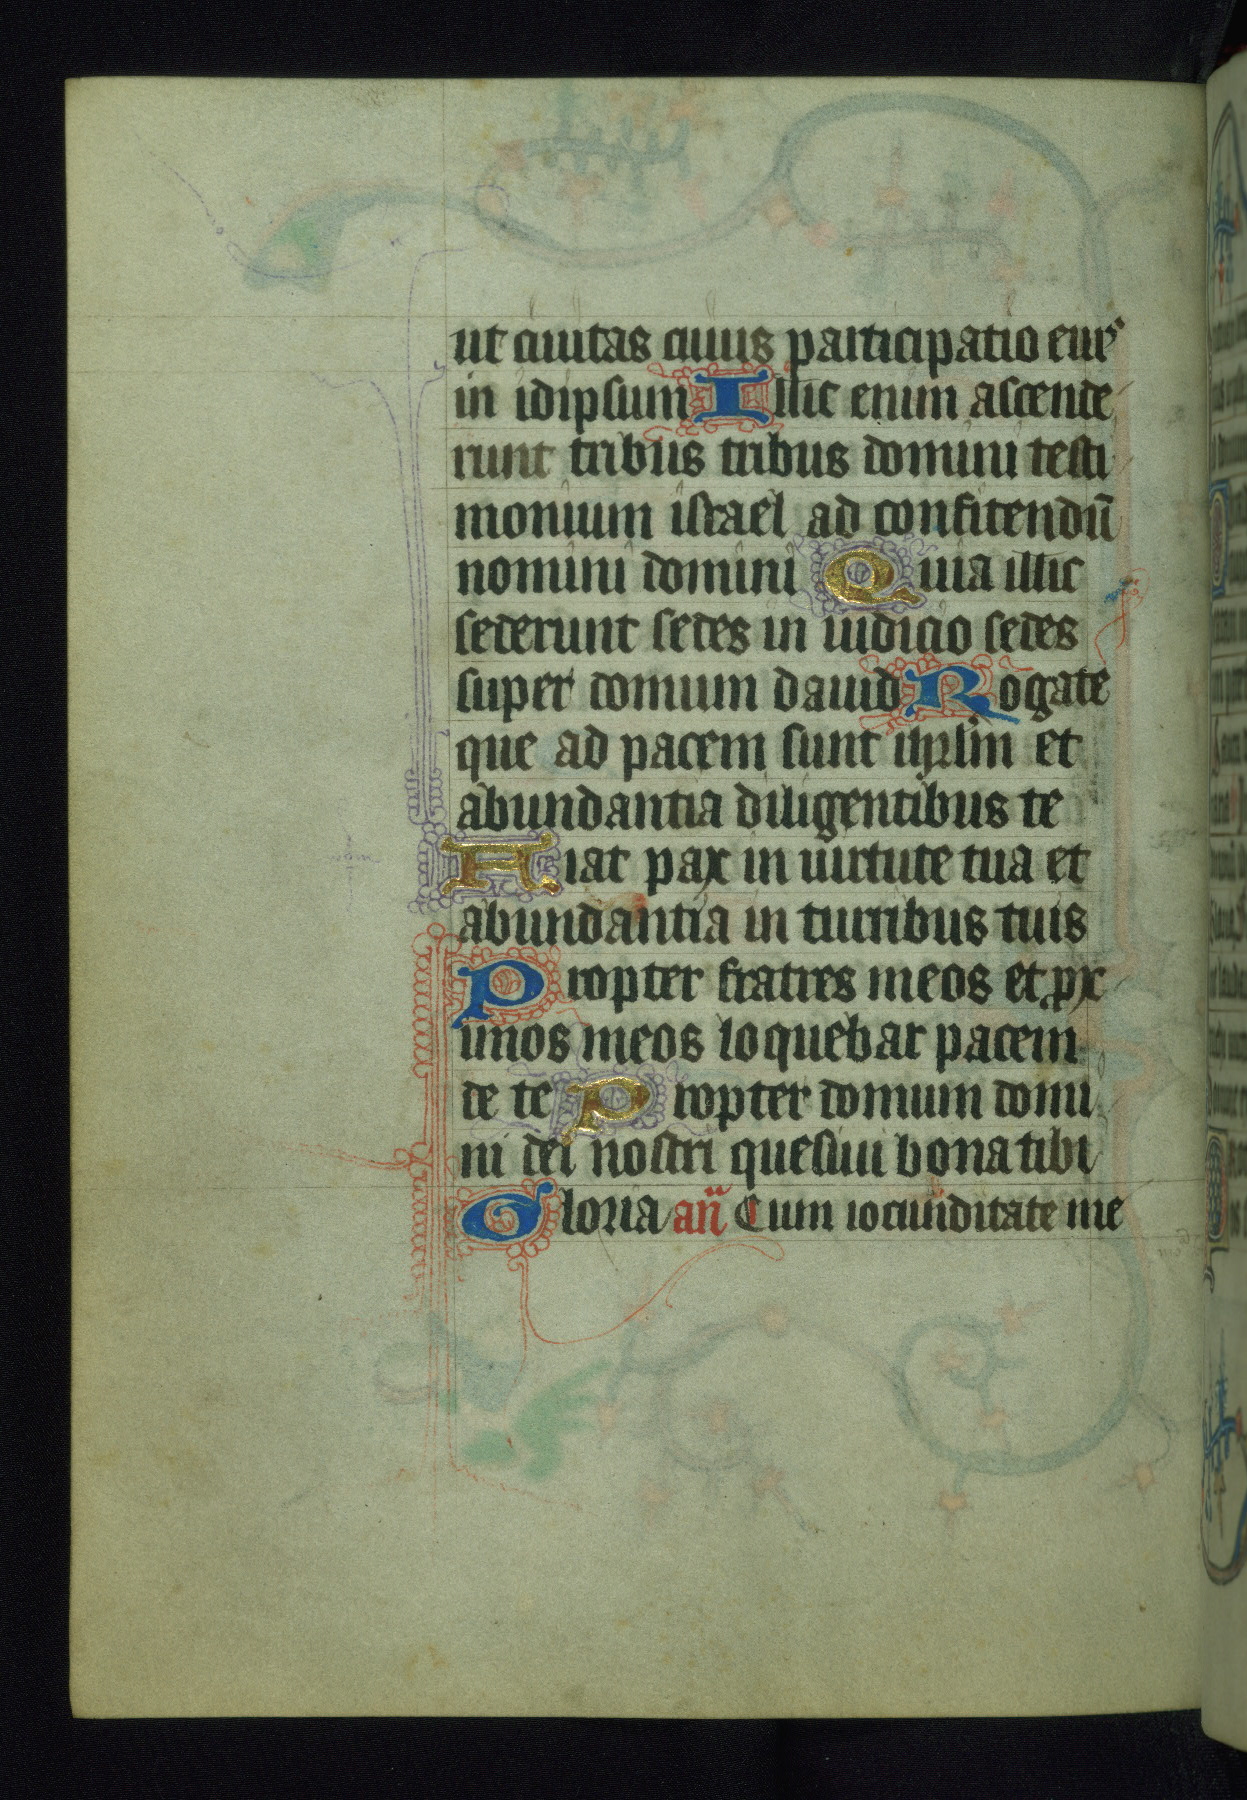 ut ciuitas cuius participatio eius
in idipsum Illic enim ascende
runt tribus tribus domini testi
monium israel ad confitendū
nomini domini Quia illic
sederunt sedes in iudicio sedes
super domum dauid Rogate
que ad pacem sunt ihrlm et
abundantia diligentibus te
Fiat pax in uirtute tua et
abundantia in turribus tuis
Propter fratres meos et prox
imos meos loquebar pacem
de te Propter domum domi
ni dei nostri quesiui bona tibi
Gloria añ Cum iocunditate me